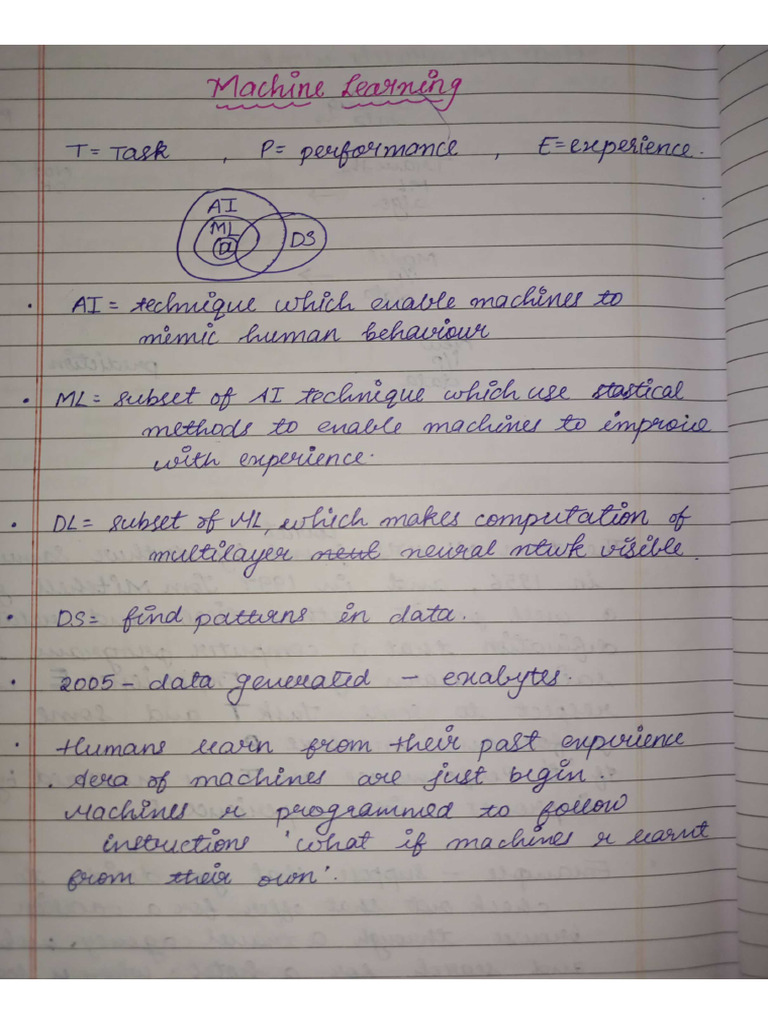 Machine Learning
T= Task , P= performance , E=experience.
AI
ML
DL
DS
• AI= technique which enable machines to
mimic human behaviour
• ML= subset of AI technique which use stastical
methods to enable machines to improve
with experience.
• DL= subset of ML which makes computation of
multilayer neural ntwk visible.
• DS= find patterns in data.
• 2005 - data generated - exabytes.
• Humans learn from their past experience
. Aera of machines are just begin .
Machines r programmed to follow
instructions 'what if machines r learnt
from their own'.